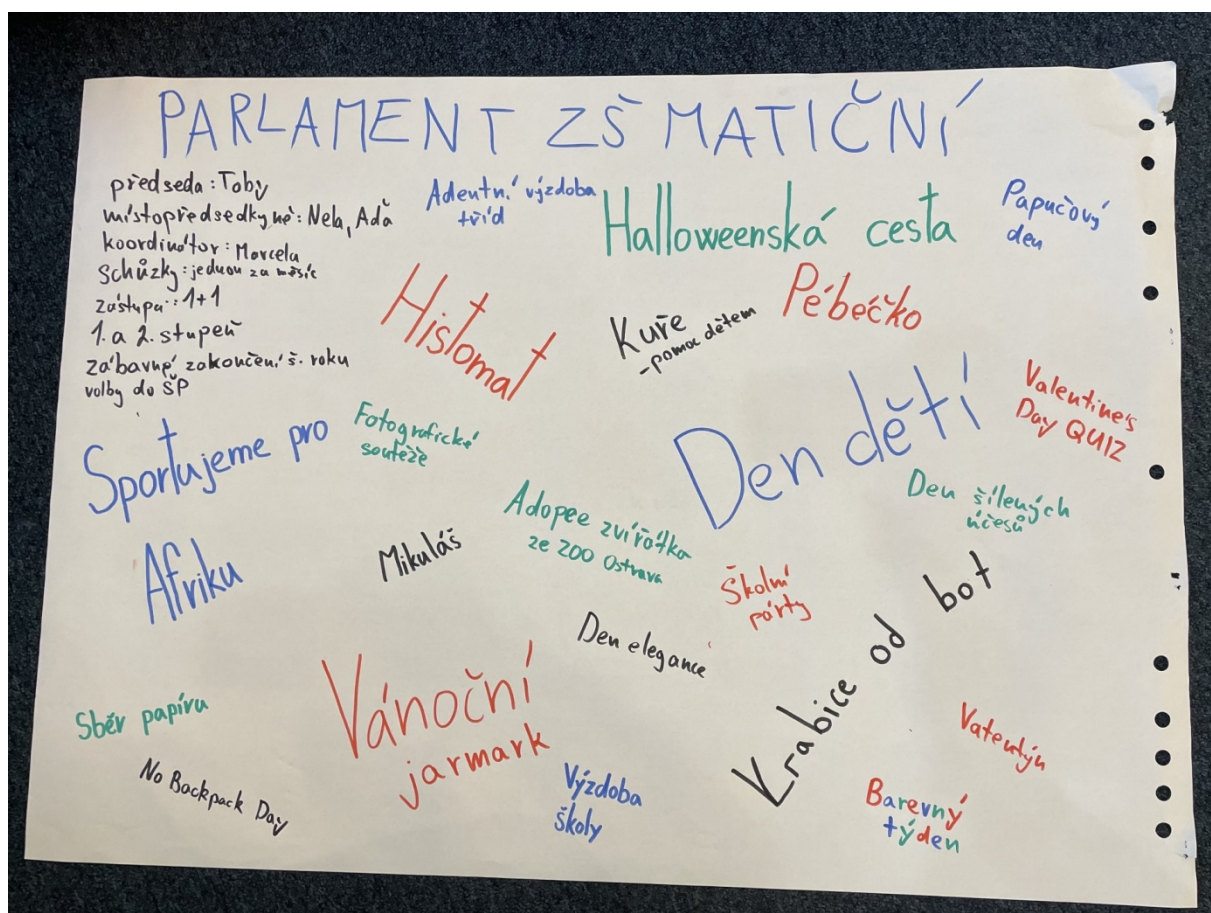 PARLAMENT ZŠ MATIČNÍ
předseda: Toby
místopředsedkyně: Nela, Adá
koordinátor: Marcela
schůzky: jednou za měsíc
zástupu: 1+1
1. a 2. stupeň
zábavné zakončení š. roku
volby do ŠP
Adentní výzdoba
tříd
Halloweenská cesta
Papučový
den
Histomat
Kuře
-pomoc dětem
Pébéčko
Valentine's
Day QUIZ
Sportujeme pro
Afriku
Fotografické
soutěže
Den dětí
Den šílených
účesů
Mikuláš
Adopce zvířátka
ze ZOO Ostrava
Školní
párty
Den elegance
Krabice od bot
Sběr papíru
Vánoční
jarmark
No Backpack Day
Výzdoba
školy
Valentýn
Barevný
týden